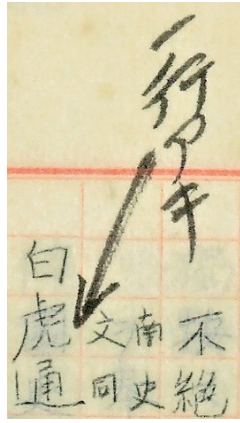 一行アキ
不絶
南史
文同
白虎通